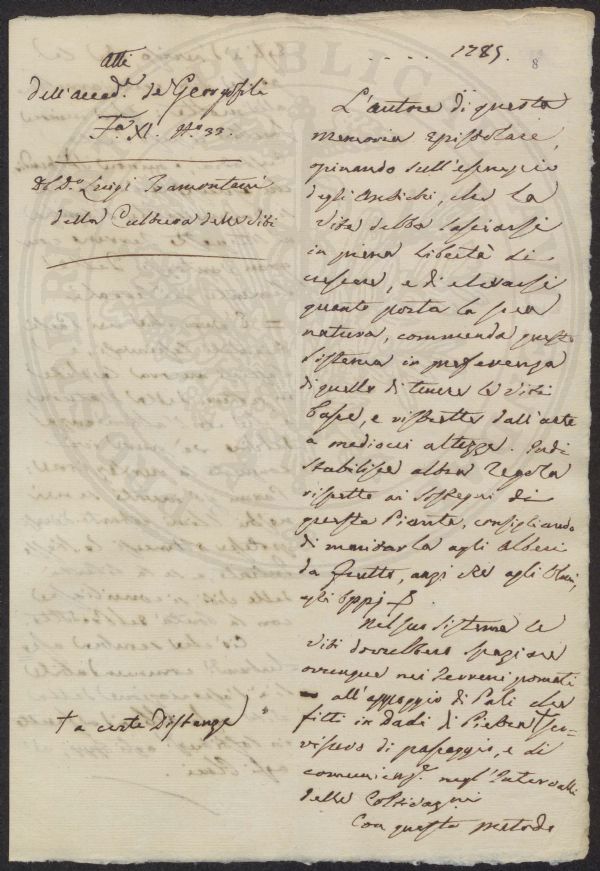 Atti
dell'accad.ª de Georgofili
Fa XI. No 33.
Luigi Tramontani
della Cultura delle Viti
..... 1785.
8
L'autore di questa
memoria epistolare,
opinando sull'esempio
degli Antichi, che la
Vite debba lasciarsi
in piena libertà di
crescere, e di elevarsi
quanto porta la sua
natura, commenda questo
sistema in preferenza
di quello di tenere le Viti
basse, e ristrette dall'arte
a mediocri altezze. Indi
stabilisce altra regola
rispetto ai sostegni di
questa Pianta, consigliando
di maritarla agli Alberi
da frutto, anzi che agli Olmi,
agli Oppj
Nel suo sistema le
Viti dovrebbero spaziare
ovunque nei terreni pomati
all'appoggio di Pali che
fitti in Dadi di Pietra †
di passeggio, e di
negl'Intervalli
delle Coltivazni
Con questo metodo
† a certe Distanze